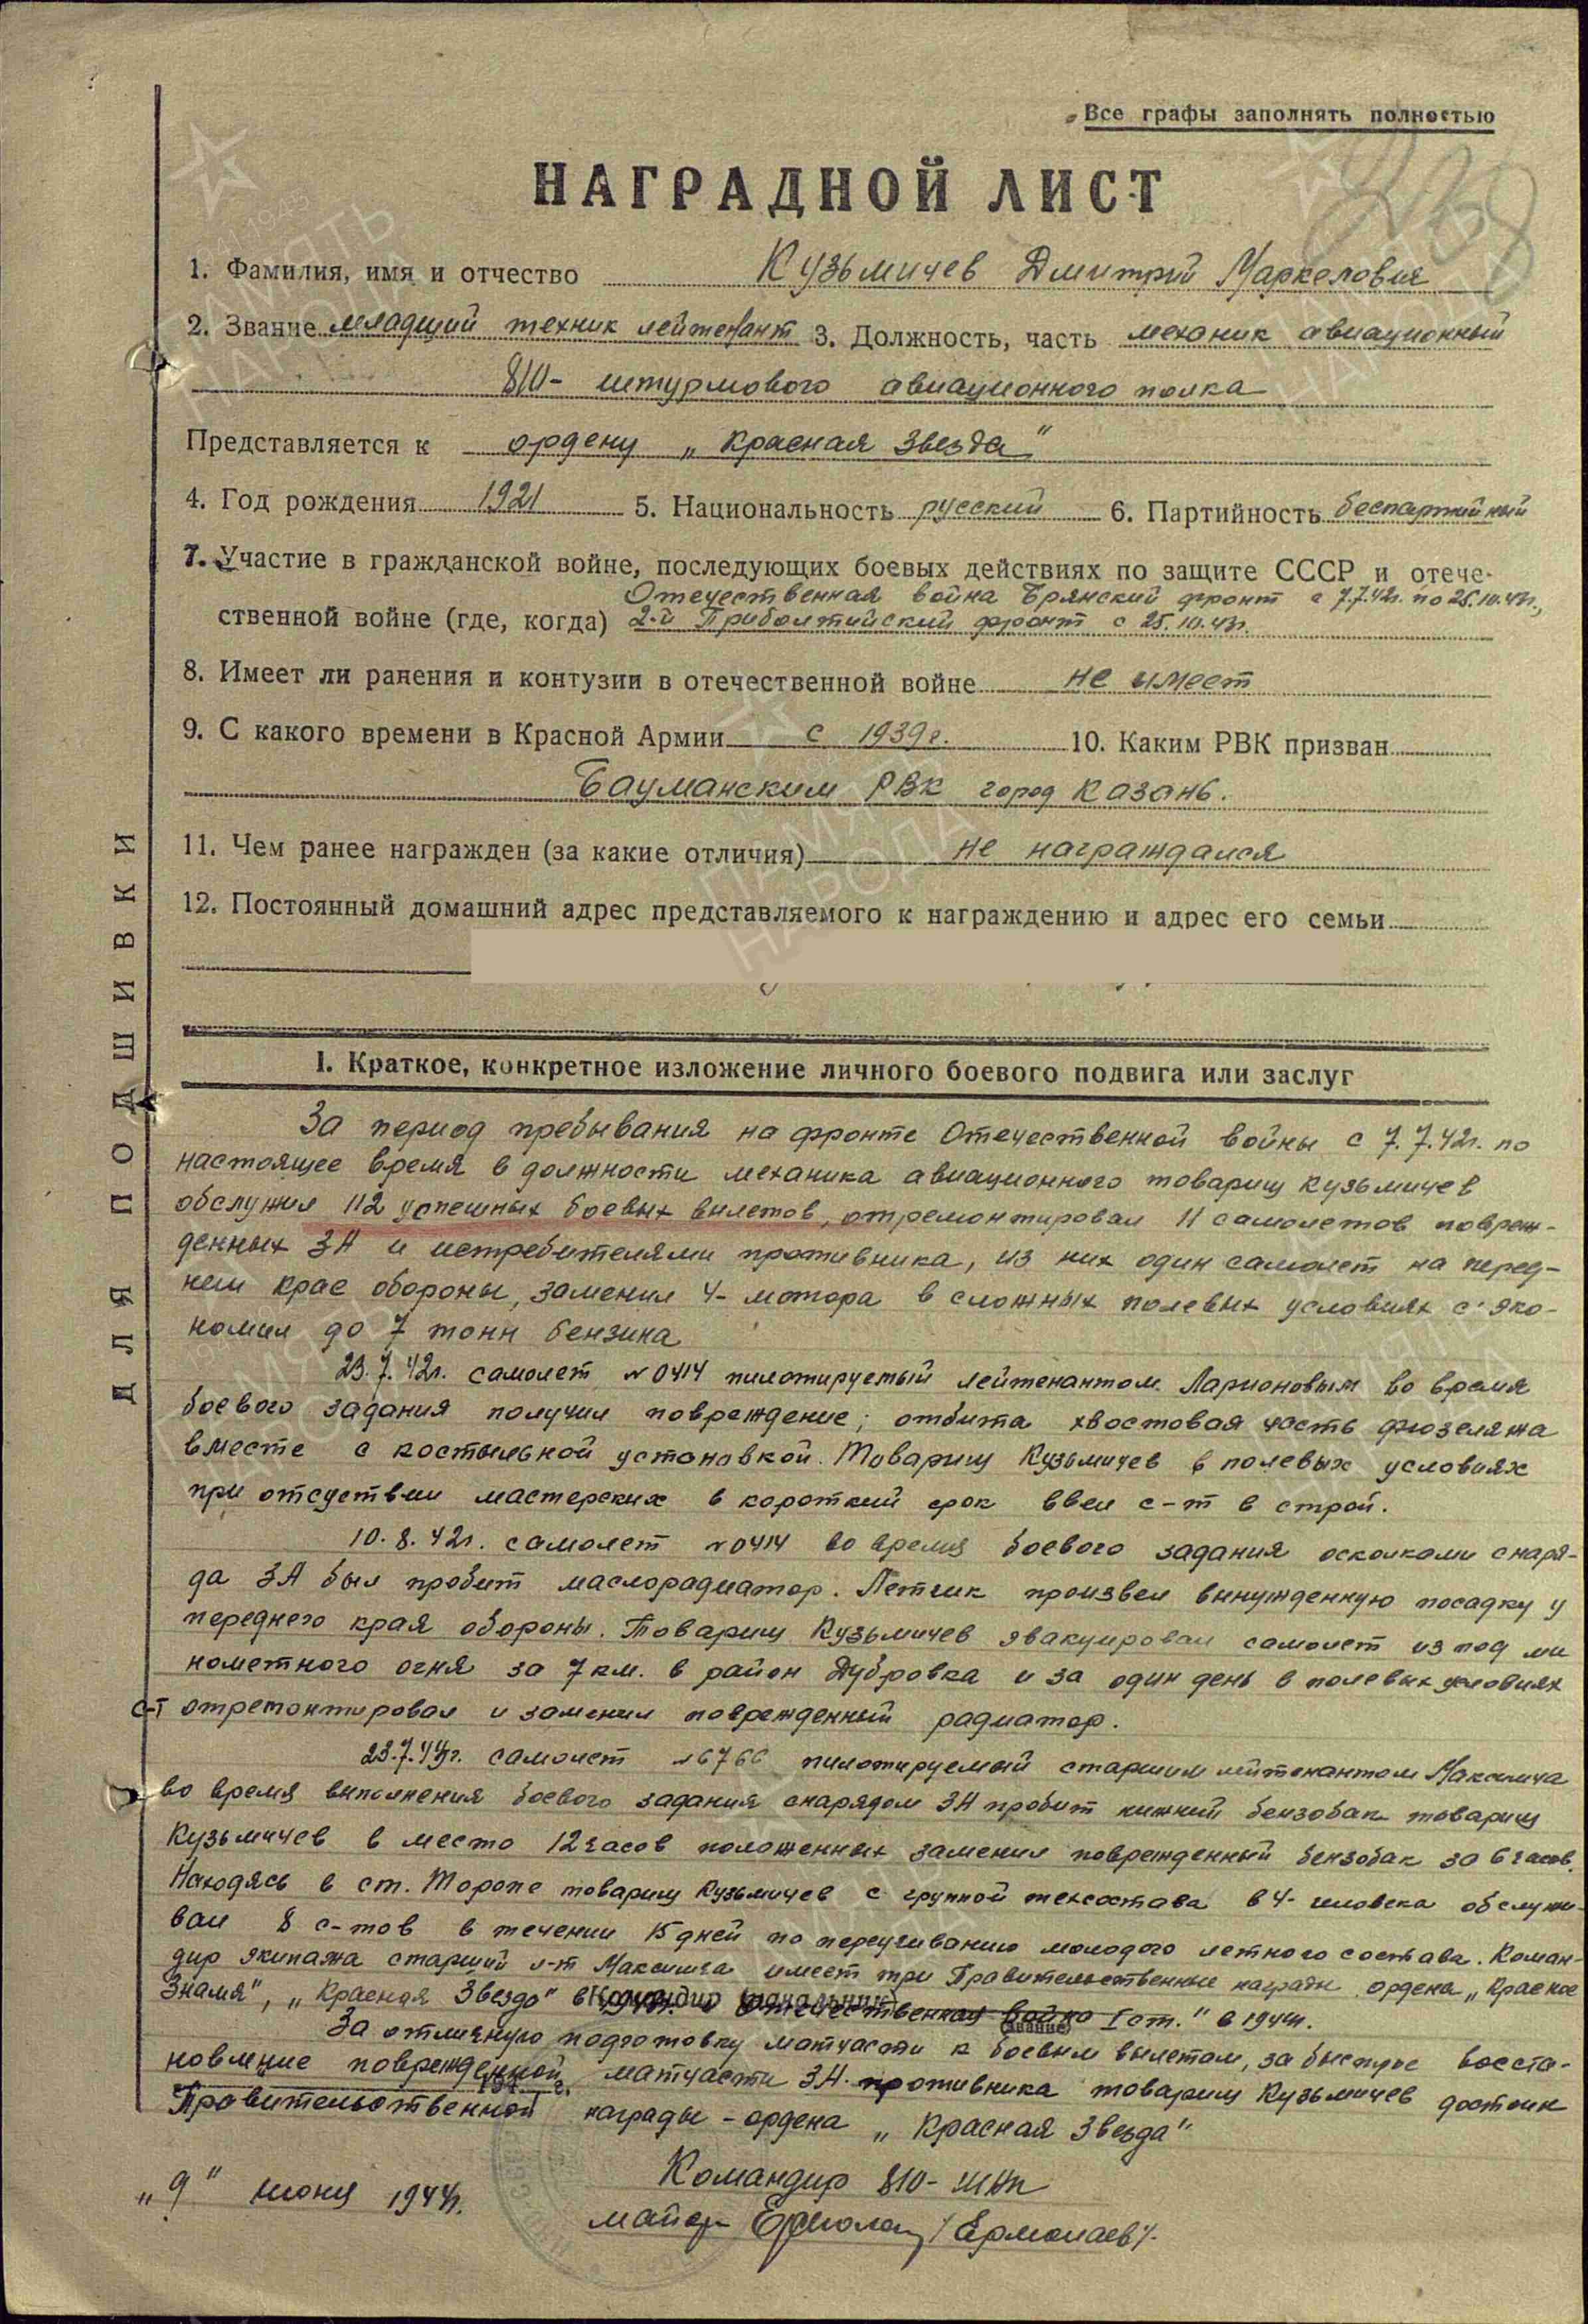 Все графы заполнять полностью
228
НАГРАДНОЙ ЛИСТ
1. Фамилия, имя и отчество Кузьмичев Дмитрий Маркелович
2. Звание младший техник лейтенант 3. Должность, часть механик авиационный
810- штурмового авиационного полка
Представляется к ордену „Красная Звезда"
4. Год рождения 1921 5. Национальность русский 6. Партийность беспартийный
7. Участие в гражданской войне, последующих боевых действиях по защите СССР и отече-
Отечественная война Брянский фронт с 7.7.42г. по 25.10.43г.,
ственной войне (где, когда) 2-й Прибалтийский фронт с 25.10.43г.
8. Имеет ли ранения и контузии в отечественной войне не имеет
9. С какого времени в Красной Армии с 1939г. 10. Каким РВК призван
Бауманским РВК город Казань.
11. Чем ранее награжден (за какие отличия) не награждался
12. Постоянный домашний адрес представляемого к награждению и адрес его семьи
ДЛЯ ПОДШИВКИ
I. Краткое, конкретное изложение личного боевого подвига или заслуг
За период пребывания на фронте Отечественной войны с 7.7.42г. по
настоящее время в должности механика авиационного товарищ Кузьмичев
обслужил 112 успешных боевых вылетов, отремонтировал 11 самолетов повреж-
денных ЗА и истребителями противника, из них один самолет на перед-
нем крае обороны, заменил 4- мотора в сложных полевых условиях с эко-
номил до 7 тонн бензина
23.7.42г. самолет №0414 пилотируемый лейтенантом Ларионовым во время
боевого задания получил повреждение; отбита хвостовая часть фюзеляжа
вместе с костыльной установкой. Товарищ Кузьмичев в полевых условиях
при отсуствии мастерских в короткий срок ввел с-т в строй.
10.8.42г. самолет №0414 во время боевого задания осколками снаря-
да ЗА был пробит маслорадиатор. Летчик произвел вынужденную посадку у
переднего края обороны. Товарищ Кузьмичев эвакуировал самолет из под ми
нометного огня за 7 км. в район Дубровка и за один день в полевых условиях
с-т отремонтировал и заменил поврежденный радиатор.
самолет №6766 пилотируемый старшим лейтенантом Максимча
во время выполнения боевого задания снарядом ЗА пробит нижний бензобак товарищ
Кузьмичев в место 12 часов положенных заменил поврежденный бензобак за 6 часов.
Находясь в ст. Торопе товарищ Кузьмичев с группой техсостава в 4- человека обслужи-
вал 8 с-тов в течении 15 дней по переучиванию молодого летного состава. Коман-
дир экипажа старший л-т Максимча имеет три Правительственные награды ордена „Красное
Знамя", „Красная Звезда" в Командир (начальник) Отечественная война I ст." в 1944г.
(звание)
За отличную подготовку матчасти к боевым вылетам, за быстрое восста-
новление поврежденной матчасти ЗА противника товарищ Кузьмичев достоин
194 г.
Правительственной награды - ордена „Красная Звезда"
Командир 810- ШАп
„9" июня 1944г.
майор /Ермолаев/.